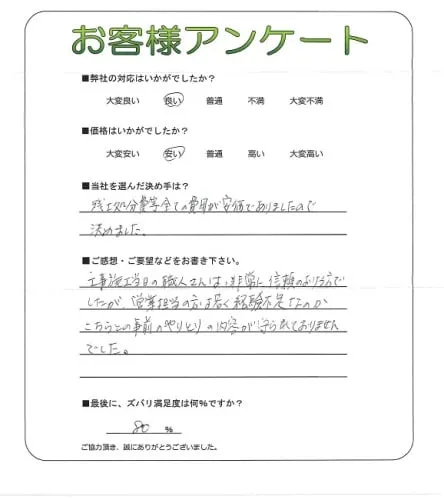 お客様アンケート
■弊社の対応はいかがでしたか?
大変良い 良い 普通 不満 大変不満
■価格はいかがでしたか?
大変安い 安い 普通 高い 大変高い
■当社を選んだ決め手は?
残土処分費等全ての費用が安価でありましたので
決めました。
■ご感想・ご要望などをお書き下さい。
工事施工当日の職人さんは、非常に信頼のおける方で
したが、営業担当の方は若く経験不足なのか
こちらとの事前のやりとりの内容が守られておりません
でした。
■最後に、ズバリ満足度は何%ですか?
80 %
ご協力頂き、誠にありがとうございました。